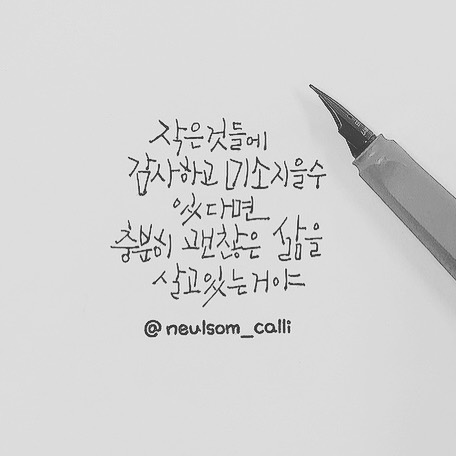 작은것들에
감사하고 미소지을수
있다면
충분히 괜찮은 삶을
살고있는거야
@neulsom_calli